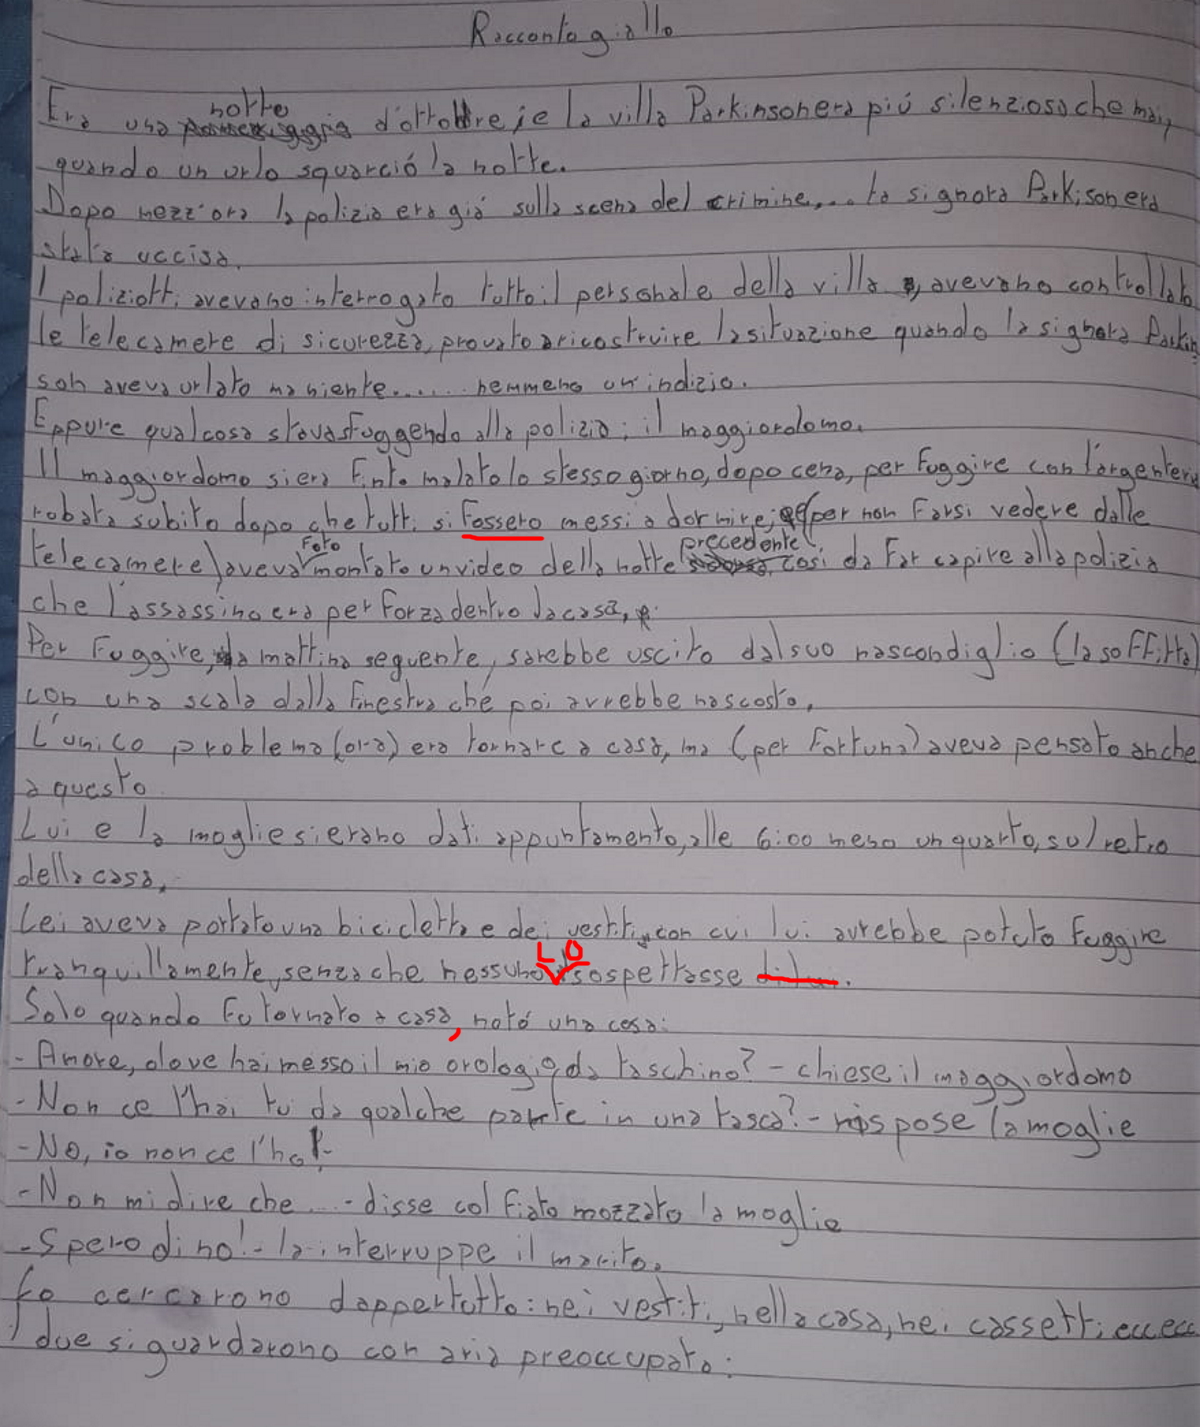 Racconto giallo
Era una notte d'ottobre, e la villa Parkinson era più silenziosa che mai,
quando un urlo squarció la notte.
Dopo mezz'ora la polizia era giá sulla scena del crimine,... la signora Parkison era
stata uccisa.
I poliziotti avevano interrogato tutto il personale della villa, avevano controllato
le telecamere di sicurezza, provato a ricostruire la situazione quando la signora Parkin
son aveva urlato ma niente..... nemmeno un indizio.
Eppure qualcosa stava sfuggendo alla polizia: il maggiordomo.
Il maggiordomo si era finto malato lo stesso giorno, dopo cena, per fuggire con l'argenteria
robata subito dopo che tutti si fossero messi a dormire; (per non farsi vedere dalle
telecamere) aveva fotomontato un video della notte precedente, cosi da far capire alla polizia
che l'assassino era per forza dentro la casa,
Per fuggire, la mattina seguente, sarebbe uscito dal suo nascondiglio (la soffitta)
con una scala dalla finestra ché poi avrebbe nascosto.
L'unico problema (ora) era tornare a casa, ma (per fortuna) aveva pensato anche
a questo.
Lui e la moglie si erano dati appuntamento, alle 6:00 meno un quarto, sul retro
della casa.
Lei aveva portato una bicicletta e dei vestiti, con cui lui avrebbe potuto fuggire
tranquillamente, senza che nessuno LO sospettasse di lui.
Solo quando fu tornato a casa, notó una cosa:
- Amore, dove hai messo il mio orologio da taschino? - chiese il maggiordomo
- Non ce l'hai tu da qualche parte in una tasca? - rispose la moglie
- No, io non ce l'ho! -
- Non mi dire che ... - disse col fiato mozzato la moglie
- Spero di no! - la interruppe il marito.
Lo cercarono dappertutto: nei vestiti, nella casa, nei cassetti, ecc ecc
I due si guardarono con aria preoccupata: